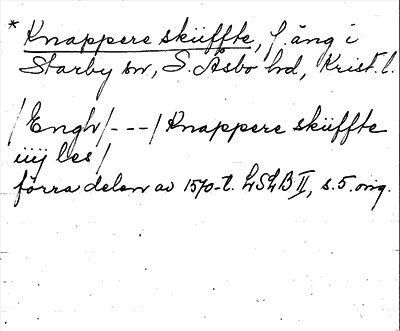 * Knappere skiiffte, f. äng i
Starby sn, S. Åsbo hd, Krist. l.
/Engh/---/Knappere skiiffte
iiij les/
förra delen av 1570-t. LSLB II, s. 5. orig.